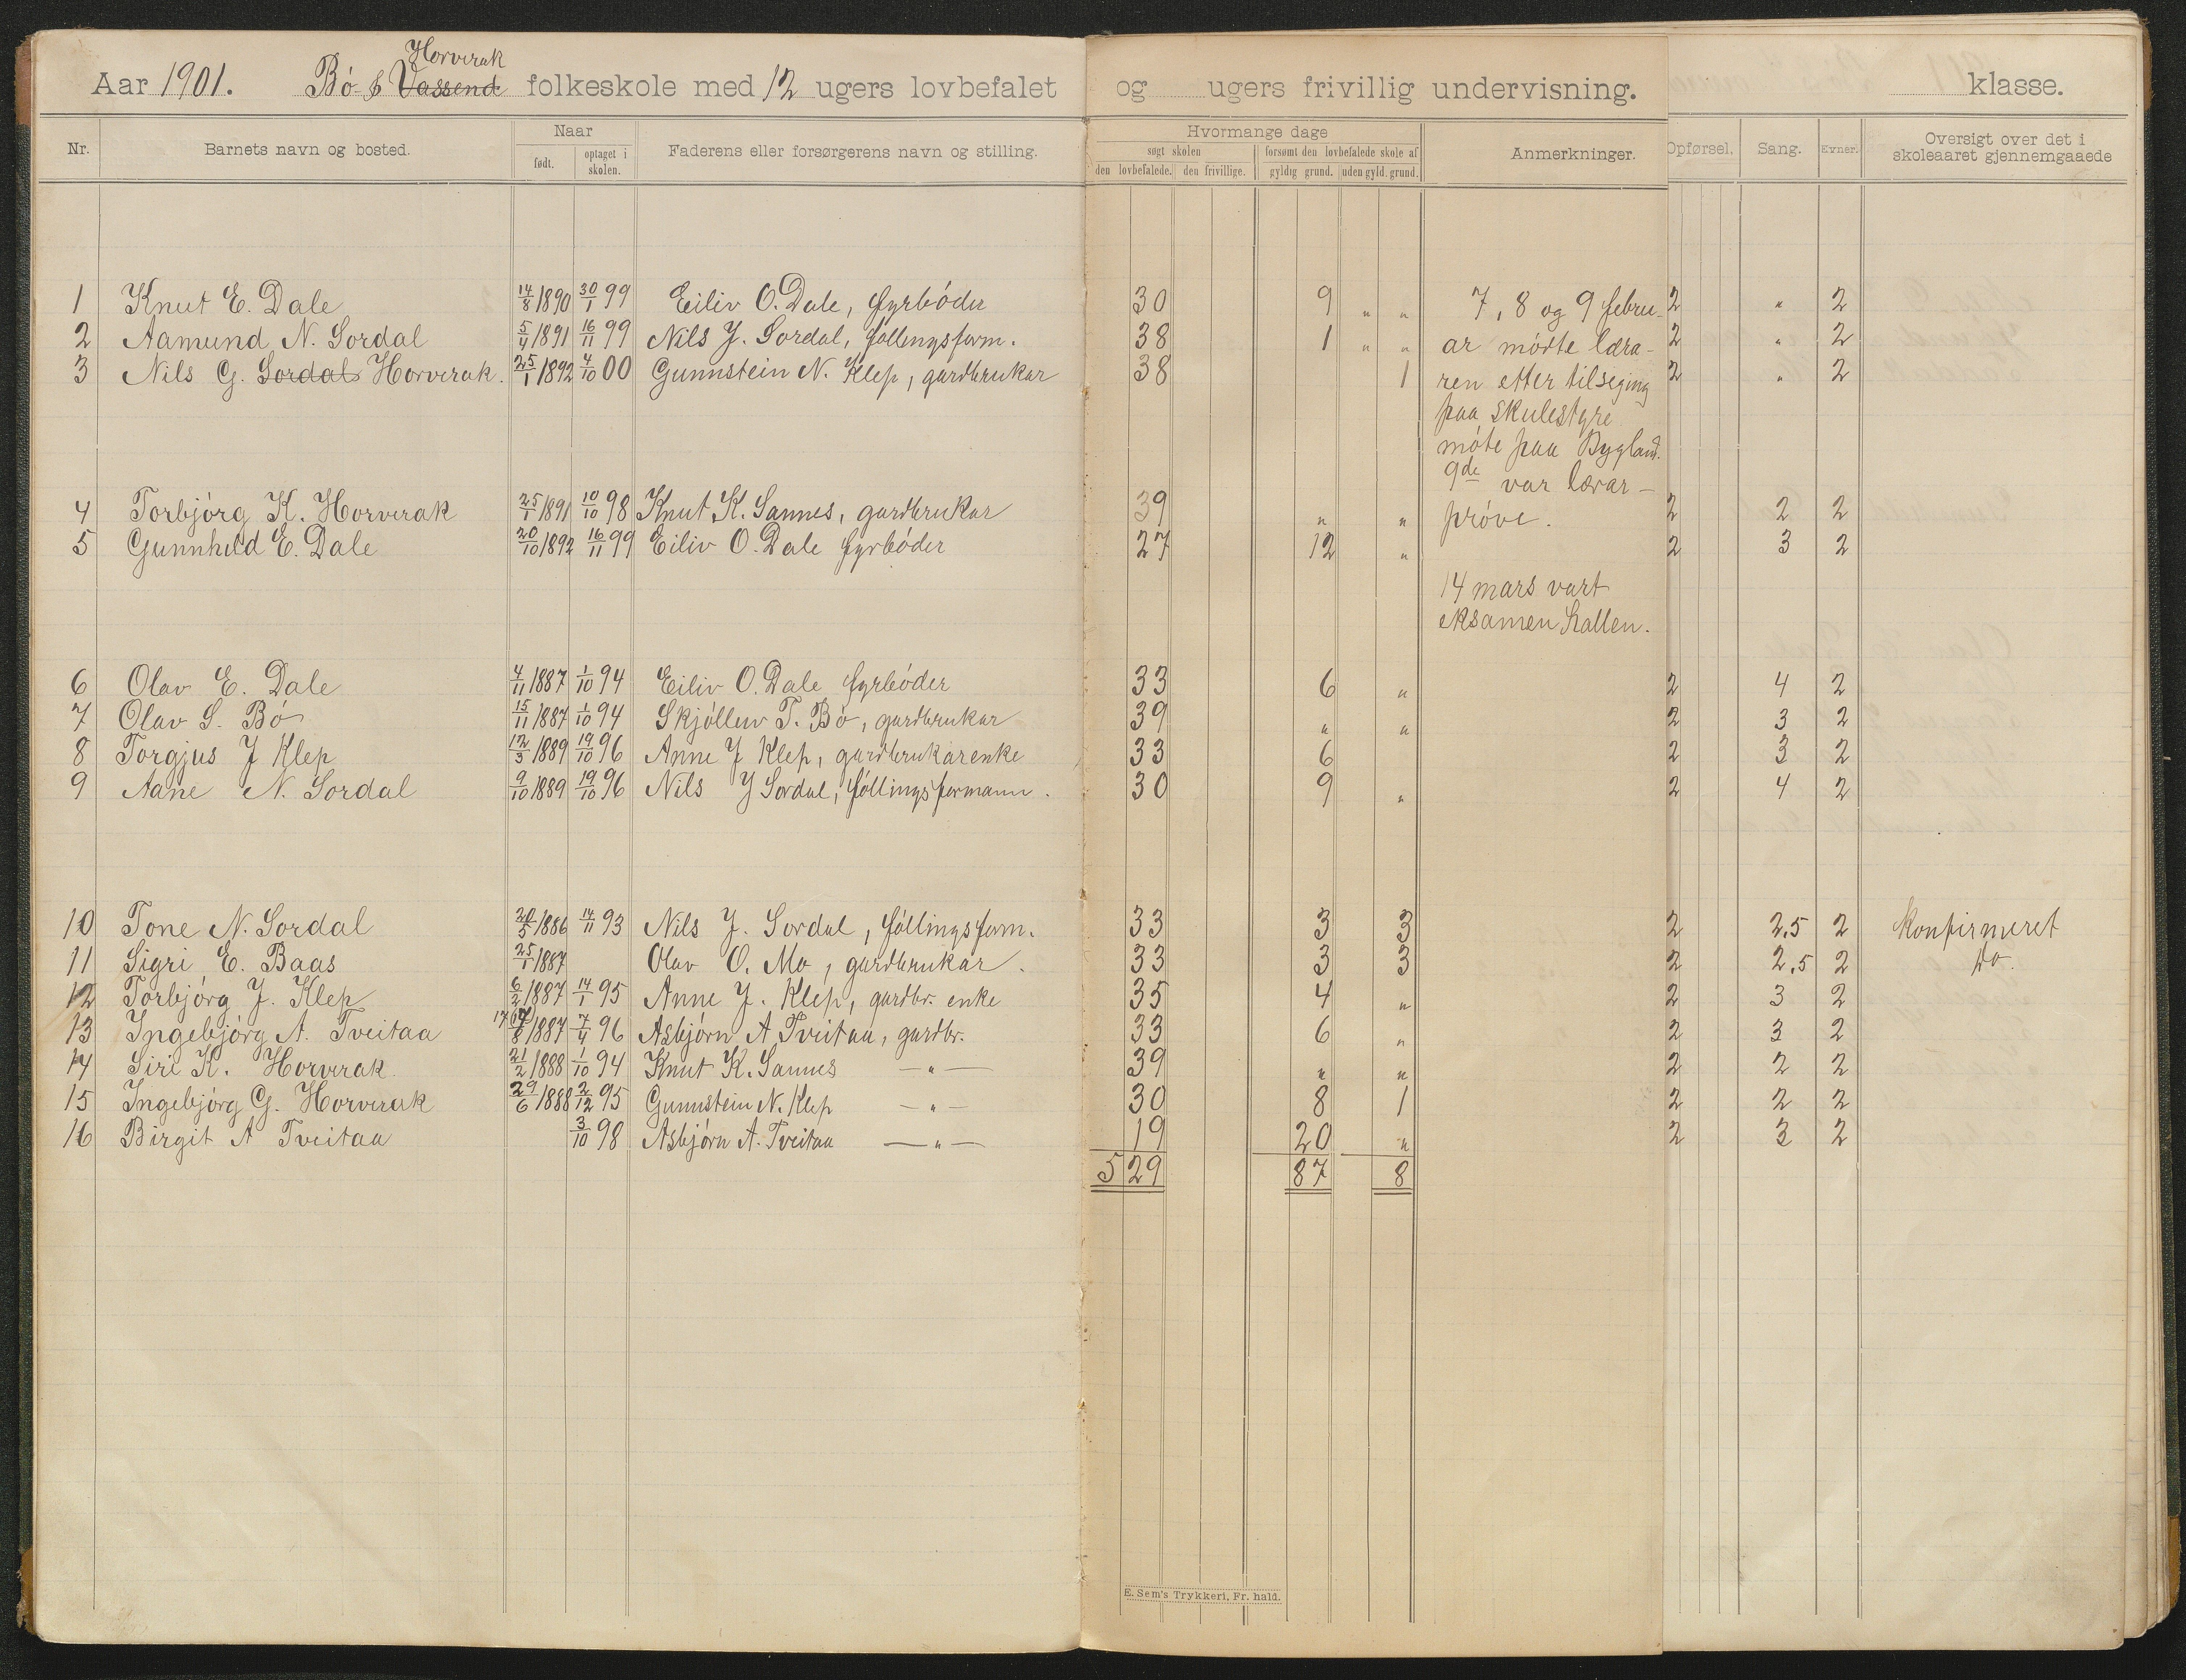 Horverak
Aar 1901. Bó & Vassend folkeskole med 12 ugers lovbefalet og ugers frivillig undervisning. klasse.
Nr. Barnets navn og bosted. Naar født. optaget i skolen. Faderens eller forsørgerens navn og stilling. Hvormange dage søgt skolen den lovbefalede. den frivillige. forsømt den lovbefalede skole af gyldig grund. uden gyld. grund. Anmerkninger. Opførsel. Sang. Evner. Oversigt over det i skoleaaret gjennemgaaede
1 Knut E. Dale 14/8 1890 30/1 99 Eiliv O. Dale, fyrbóder 30 9 „ „ 7, 8 og 9 febru- 2 „ 2
2 Aamund N. Sordal 5/4 1891 16/11 99 Nils J. Sordal, fóllingsform. 38 1 „ „ ar módte læra- 2 „ 2
3 Nils G. Sordal Horverak. 25/1 1892 4/10 00 Gunnstein N. Klep, gardbrukar 38 1 ren etter tilseging 2 „ 2
paa skulestyre
móte paa Bygland.
9de var lærar-
4 Torbjórg K. Horverak 25/1 1891 10/10 98 Knut K. Sannes, gardbrukar 39 „ „ próve. 2 2 2
5 Gunnhild E. Dale 20/10 1892 16/11 99 Eiliv O. Dale fyrbóder 27 12 „ 2 3 2
14 mars vart
eksamen hallen.
6 Olav E. Dale 4/11 1887 1/10 94 Eiliv O. Dale fyrbóder 33 6 „ 2 4 2
7 Olav S. Bó 15/11 1887 1/10 94 Skjólluv T. Bó, gardbrukar 39 „ „ 2 3 2
8 Torgjus J Klep 12/3 1889 19/10 96 Anne J Klep, gardbrukarenke 33 6 2 3 2
9 Aane N. Sordal 9/10 1889 19/10 96 Nils J Sordal, fóllingsformann. 30 9 „ 2 4 2
10 Tone N. Sordal 20/5 1886 14/11 93 Nils J. Sordal, fóllingsform. 33 3 3 2 2,5 2 Konfirmeret
11 Sigri E. Baas 25/1 1887 Olav O. Mo, gardbrukar. 33 3 3 2 2,5 2 do.
12 Torbjórg J. Klep 6/2 1887 14/1 95 Anne J. Klep, gardbr. enke 35 4 „ 2 3 2
13 Ingebjórg A. Tveitaa 17/8 1887 7/4 96 Asbjórn A Tveitaa, gardbr. 33 6 „ 2 3 2
14 Siri K. Horverak 21/2 1888 1/10 94 Knut K. Sannes —„— 39 „ „ 2 2 2
15 Ingebjórg G. Horverak 29/6 1888 2/12 95 Gunnstein N. Klep —„— 30 8 1 2 2 2
16 Birgit A Tveitaa 3/10 98 Asbjórn A. Tveitaa —„— 19 20 „ 2 3 2
529 87 8
E. Sem's Trykkeri, Fr. hald.